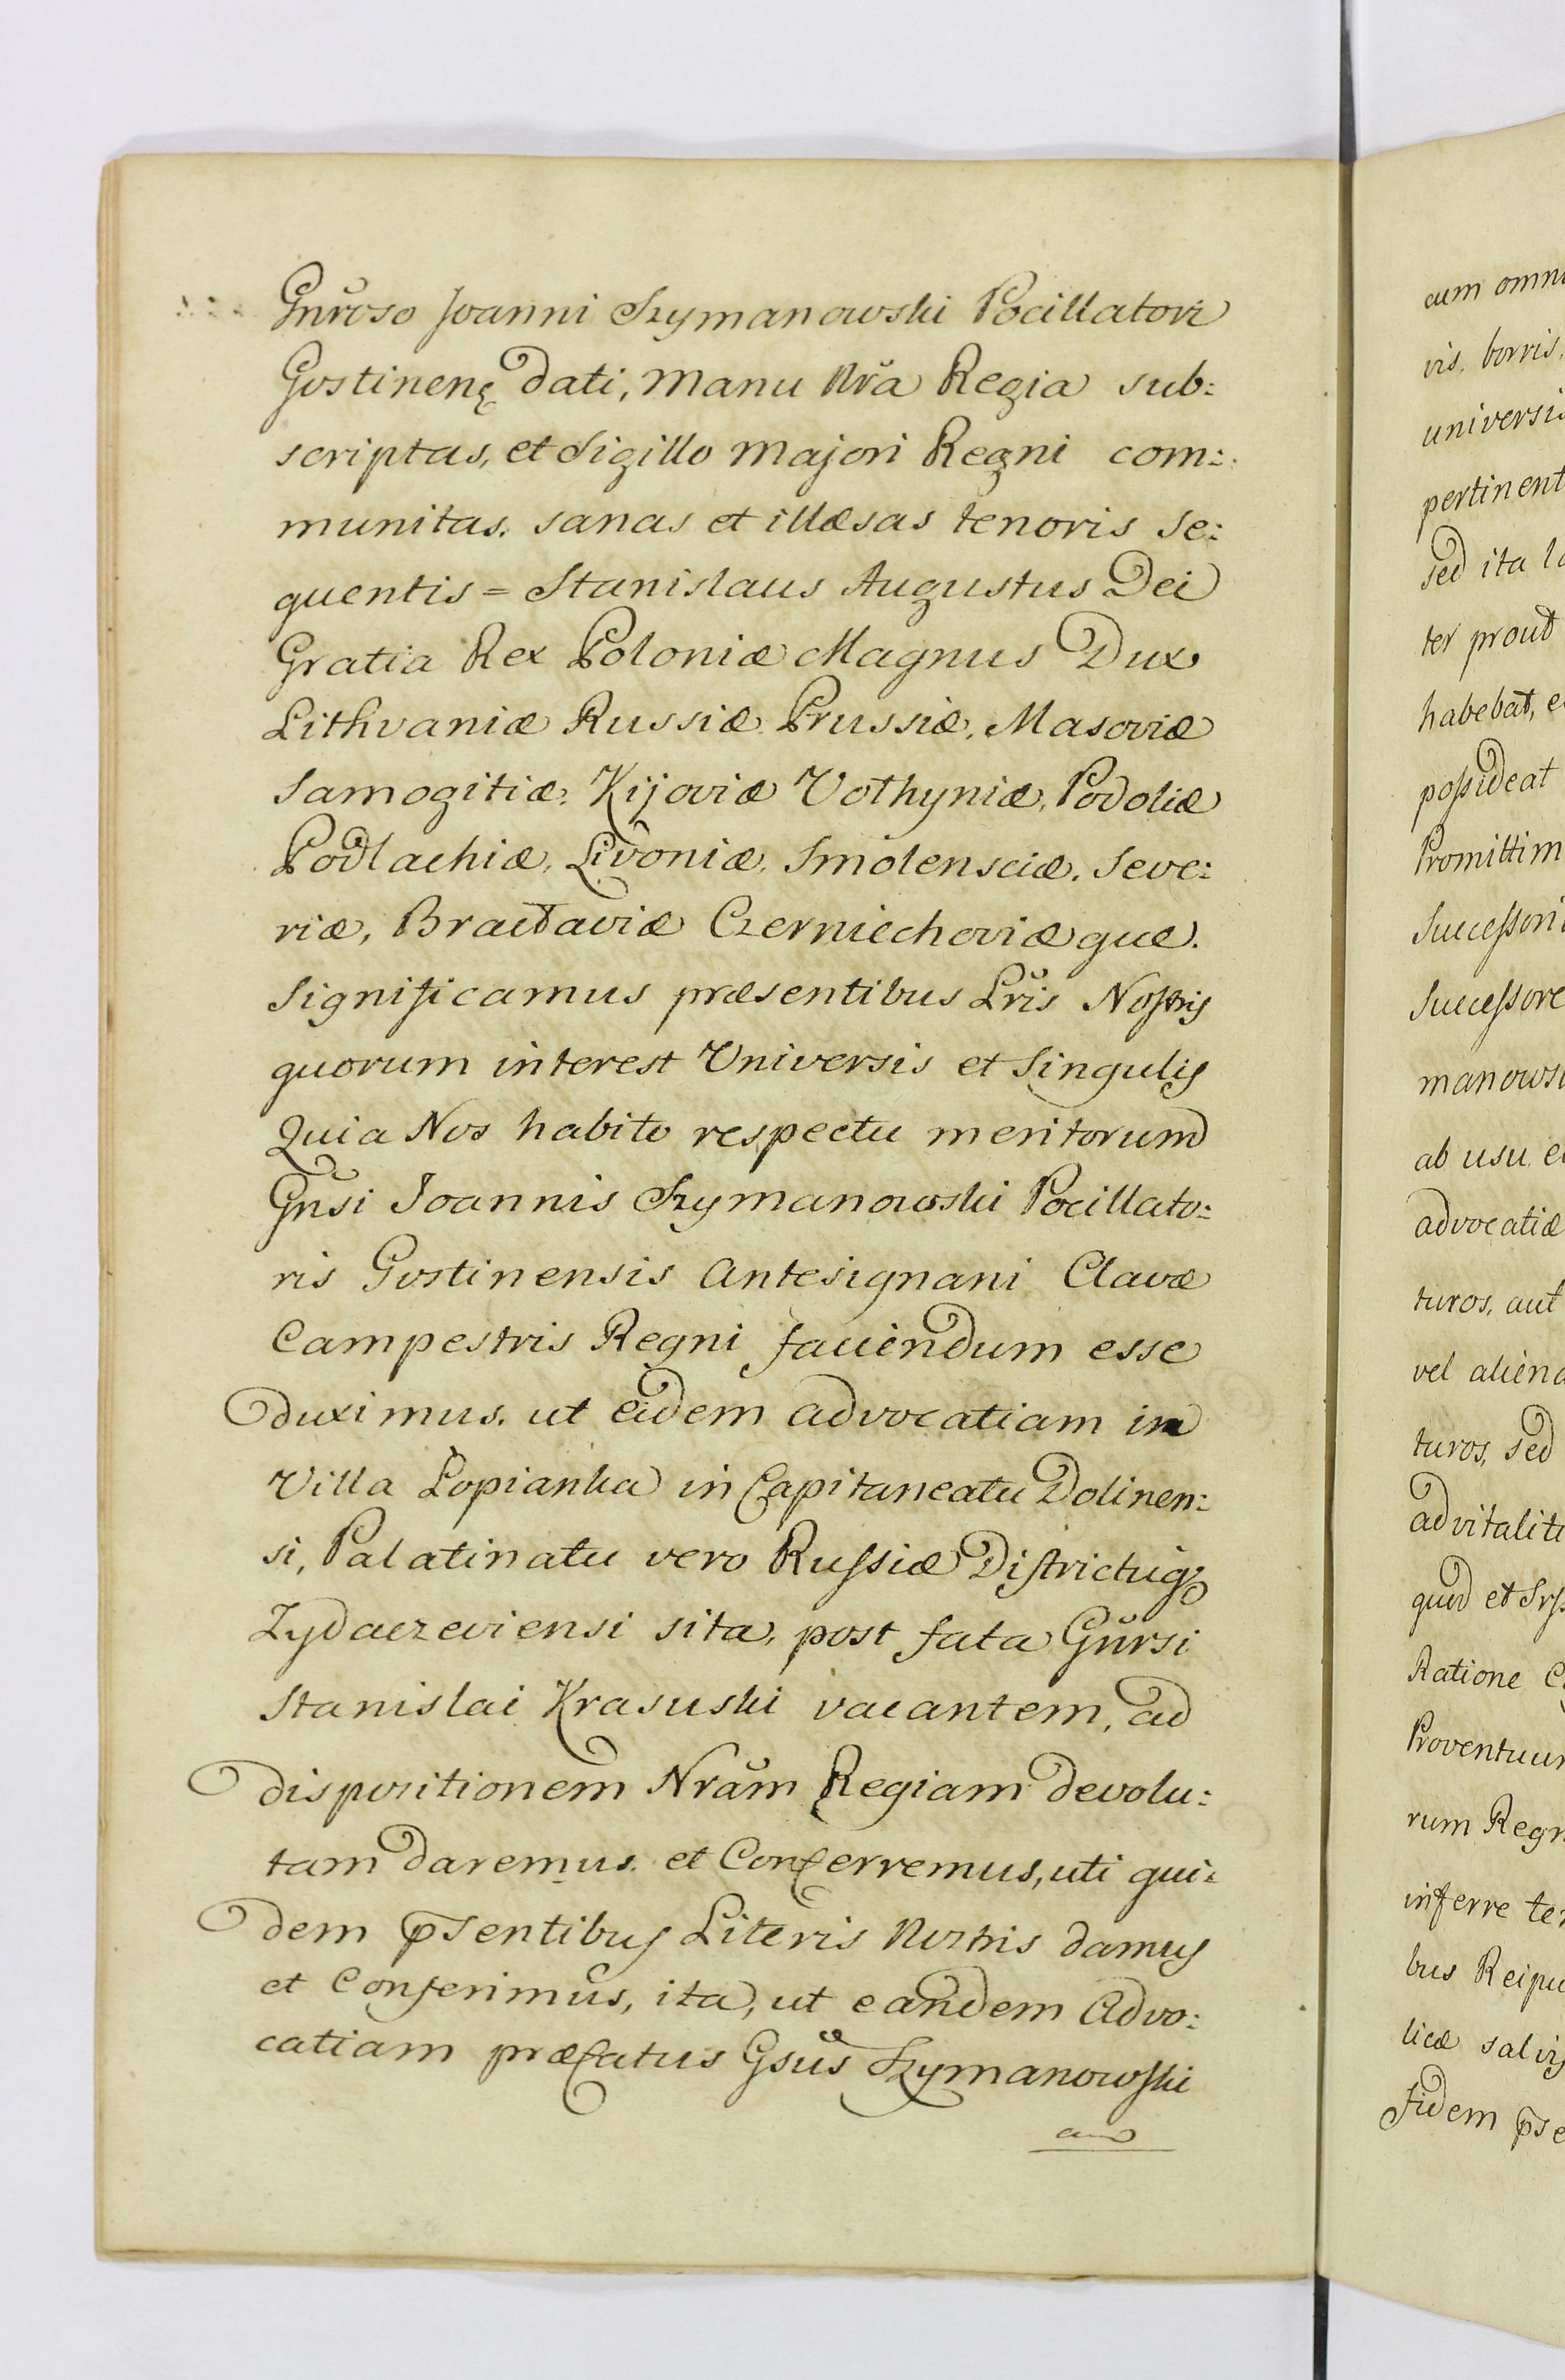 Gnroso Joanni Szymanowski Pocillatori
Gostinenę dati, manu Nra Regia sub:
scriptas, et Sigillo Majori Regni com:
munitas, sanas et illæsas tenoris se:
quentis = Stanislaus Augustus Dei
Gratia Rex Poloniæ Magnus Dux
Lithvaniæ Russiæ Prussiæ, Masoviæ
Samogitiæ, Kijoviæ Volhyniæ, Podoliæ
Podlachiæ, Livoniæ, Smolensciæ, Seve:
riæ, Braclaviæ Czerniechoviæque.
Significamus præsentibus Lris Nostris
quorum interest Universis et Singulis
Quia Nos habito respectu meritorum
Gnsi Joannis Szymanowski Pocillato:
ris Gostinensis Antesignani Clavæ
Campestris Regni faciendum esse
duximus, ut eidem advocatiam in
Villa Lopianka in Capitaneatu Dolinen:
si, Palatinatu vero Russiæ Districtuq3
Zydaczeviensi sita, post fata Gnrsi
Stanislai Krasuski vacantem, ad
dispositionem Nram Regiam devolu:
tam daremus et Conferremus, uti qui:
dem psentibus Literis Nostris damus
et Conferimus, ita, ut eandem Advo:
catiam præfatus Gsus Szymanowski
cum omni
vis, borris,
universis
pertinent
sed ita la
ter prout
habebat, e
possideat
Promittim
Successori
Successore
manows
ab usu, e
advocatiæ
turos, aut
vel aliena
turos, sed
advitalit
quod et
Ratione C
Proventuu
rum Regn
inferre te
bus Reipu
licæ salvis
Fidem pse